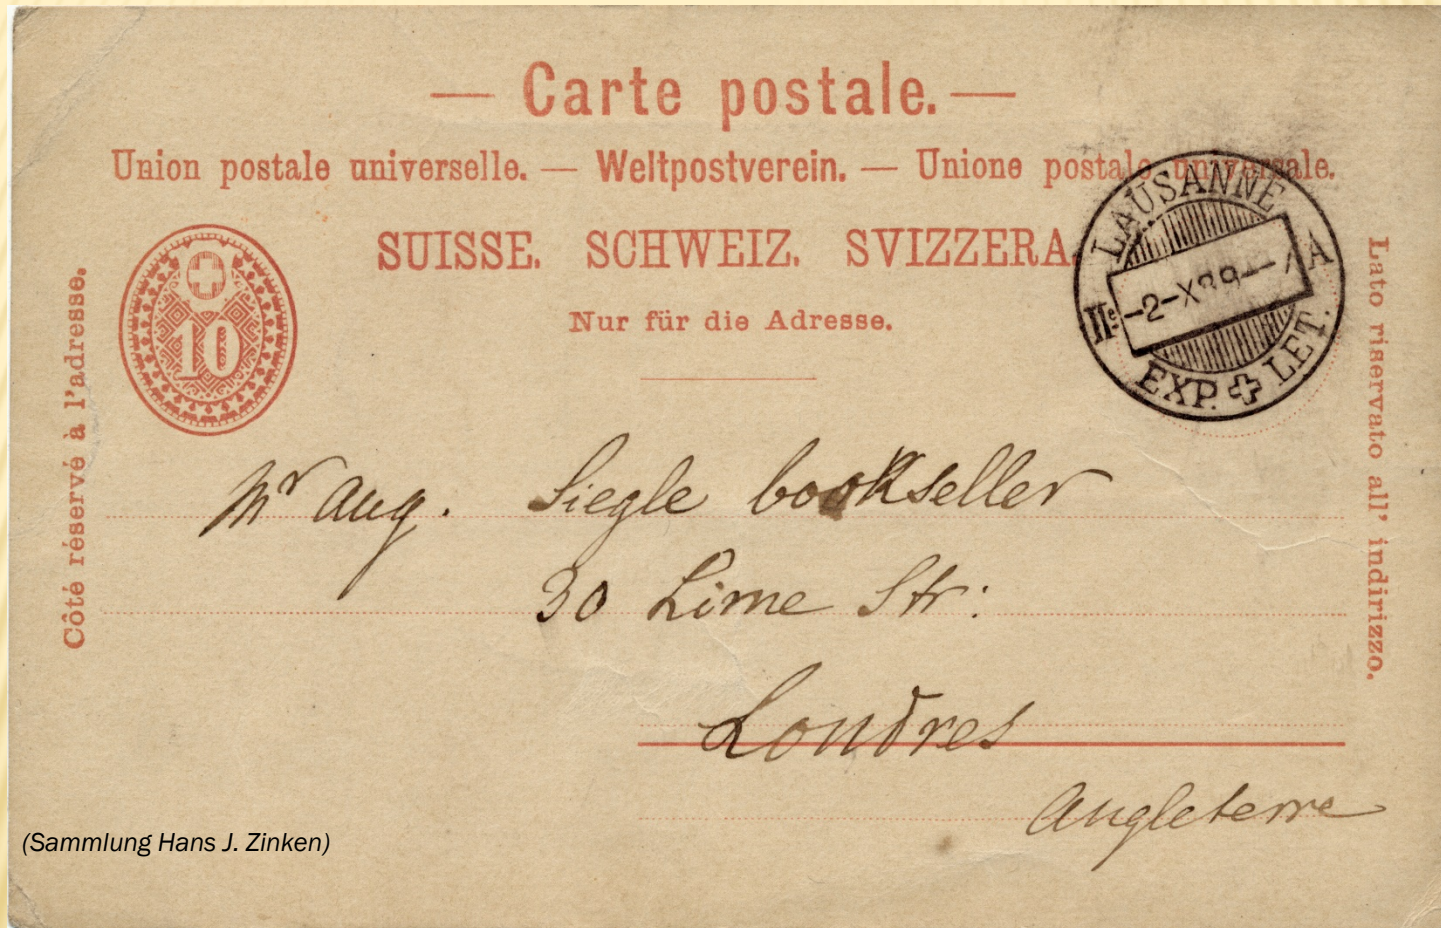 — Carte postale. —
Union postale universelle. — Weltpostverein. — Unione postale universale.
SUISSE. SCHWEIZ. SVIZZERA.
Nur für die Adresse.
Côté réservé à l'adresse.
10
LAUSANNE
A
IIe.
-2-X 89-
EXP. LET.
Lato riservato all' indirizzo.
Mr Aug. Siegle bookseller
30 Lime Str:
Londres
Angleterre
(Sammlung Hans J. Zinken)